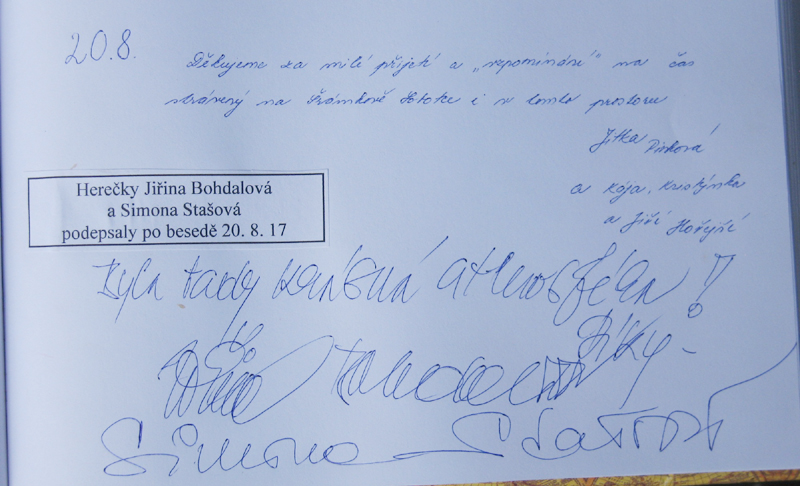 20.8.
Děkujeme za milé přijetí a „vzpomínání" na čas
strávený na Šrámkově Sobotce i v tomto prostoru
Jitka
a Kája, Kristýnka
a Jiří Hořejší
Herečky Jiřina Bohdalová
a Simona Stašová
podepsaly po besedě 20. 8. 17
Byla tady krásná atmosféra!
Díky
Jiřina Bohdalová
Simona Stašová